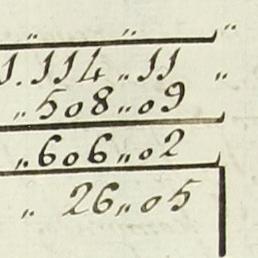 " " "
1.114 „ 11 „
„ 508 „ 09
„ 606 „ 02
„ 26 „ 05